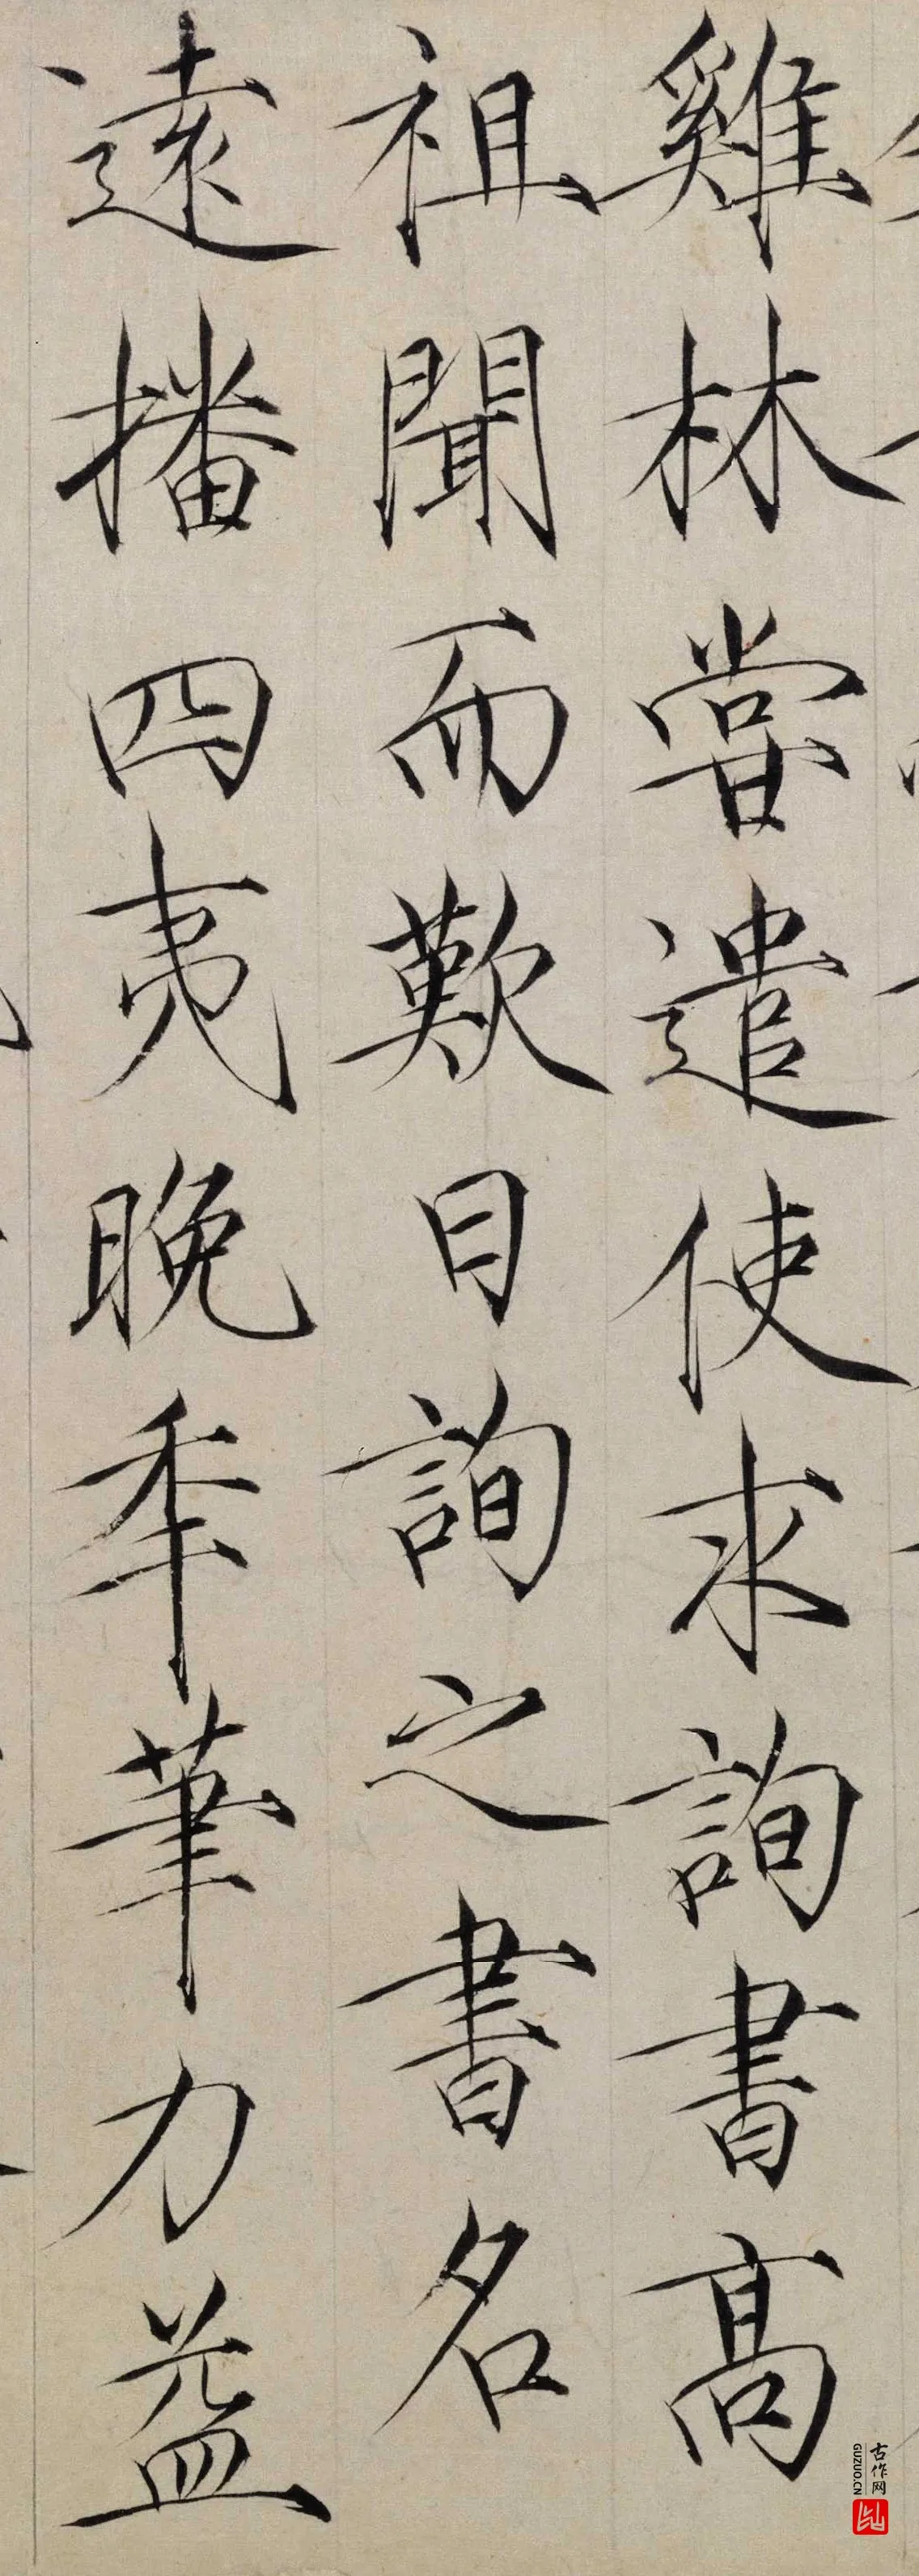 雞林嘗遣使求詢書高
祖聞而歎曰詢之書名
遠播四夷晚年筆力益
古作网
GUZUO.CN